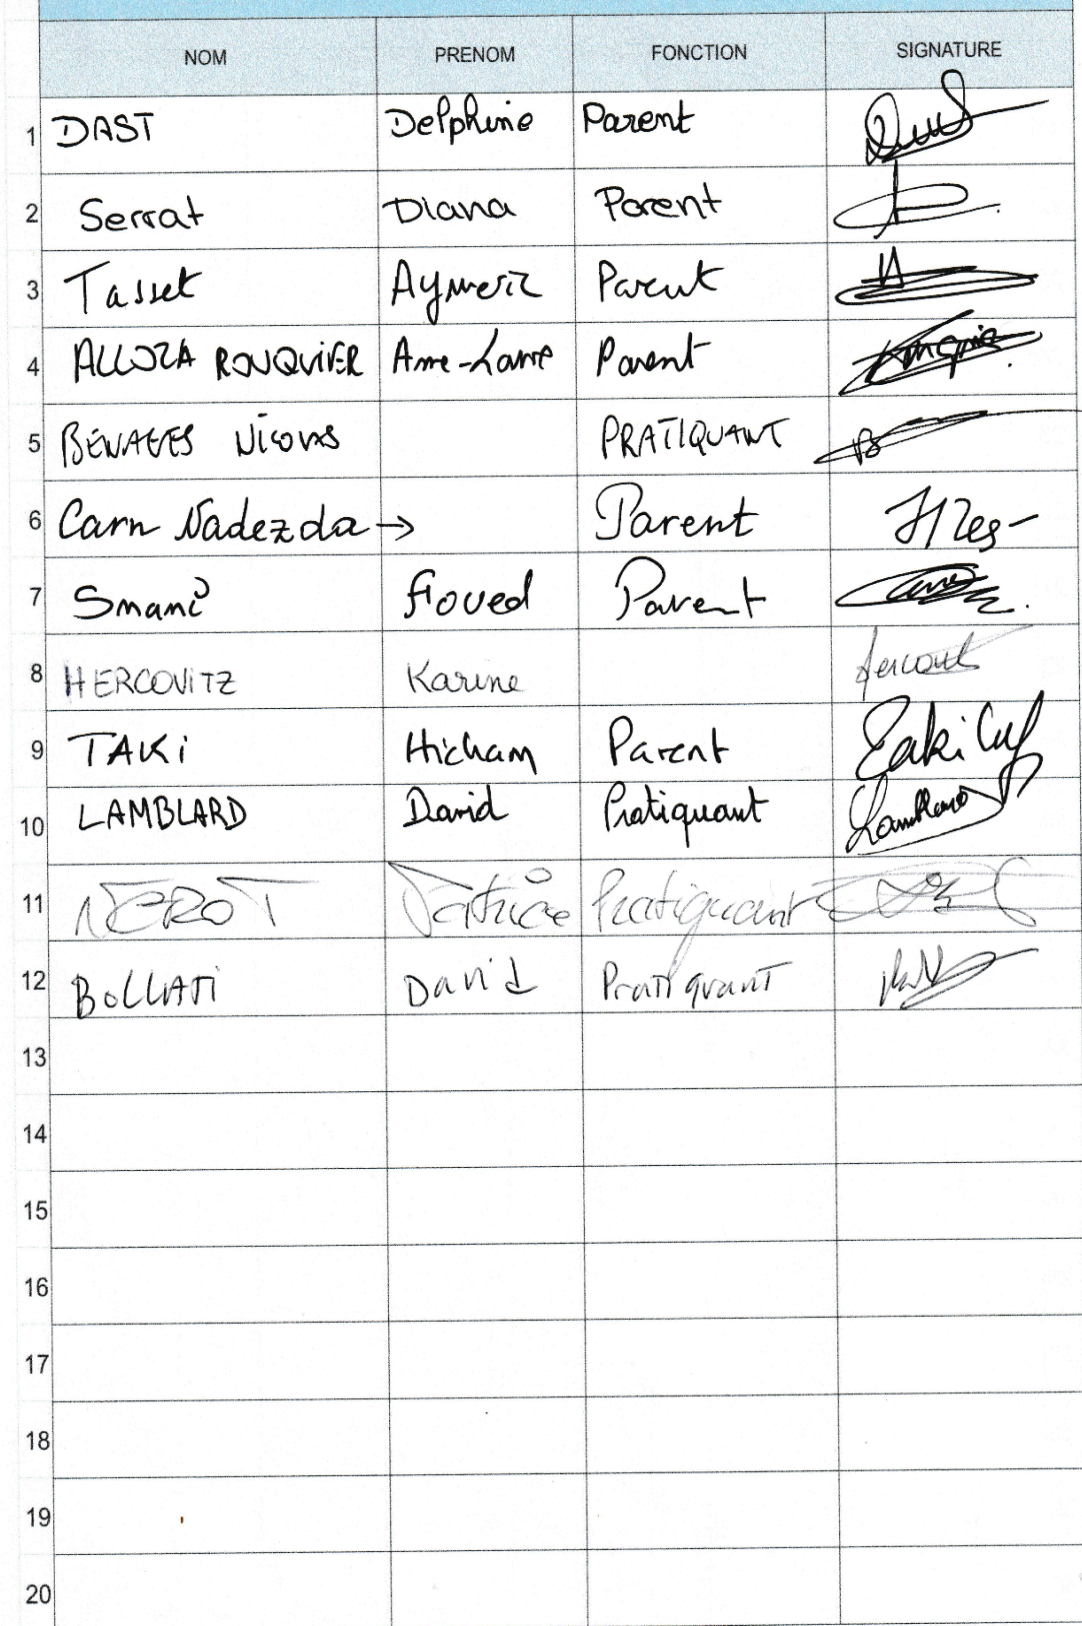 NOM PRENOM FONCTION SIGNATURE
1 DAST Delphine Parent
2 Serrat Diana Parent
3 Tasset Aymeric Parent
4 ALLOZA ROUQUIER Anne-Laure Parent
5 BENAGES Nicolas PRATIQUANT
6 Carn Nadezda → Parent
7 Smani Foued Parent
8 HERCOVITZ Karine
9 TAKI Hicham Parent Taki
10 LAMBLARD David Pratiquant Lamblard
11 NEROT Patrice Pratiquant
12 BOLLATI David Pratiquant
13
14
15
16
17
18
19
20